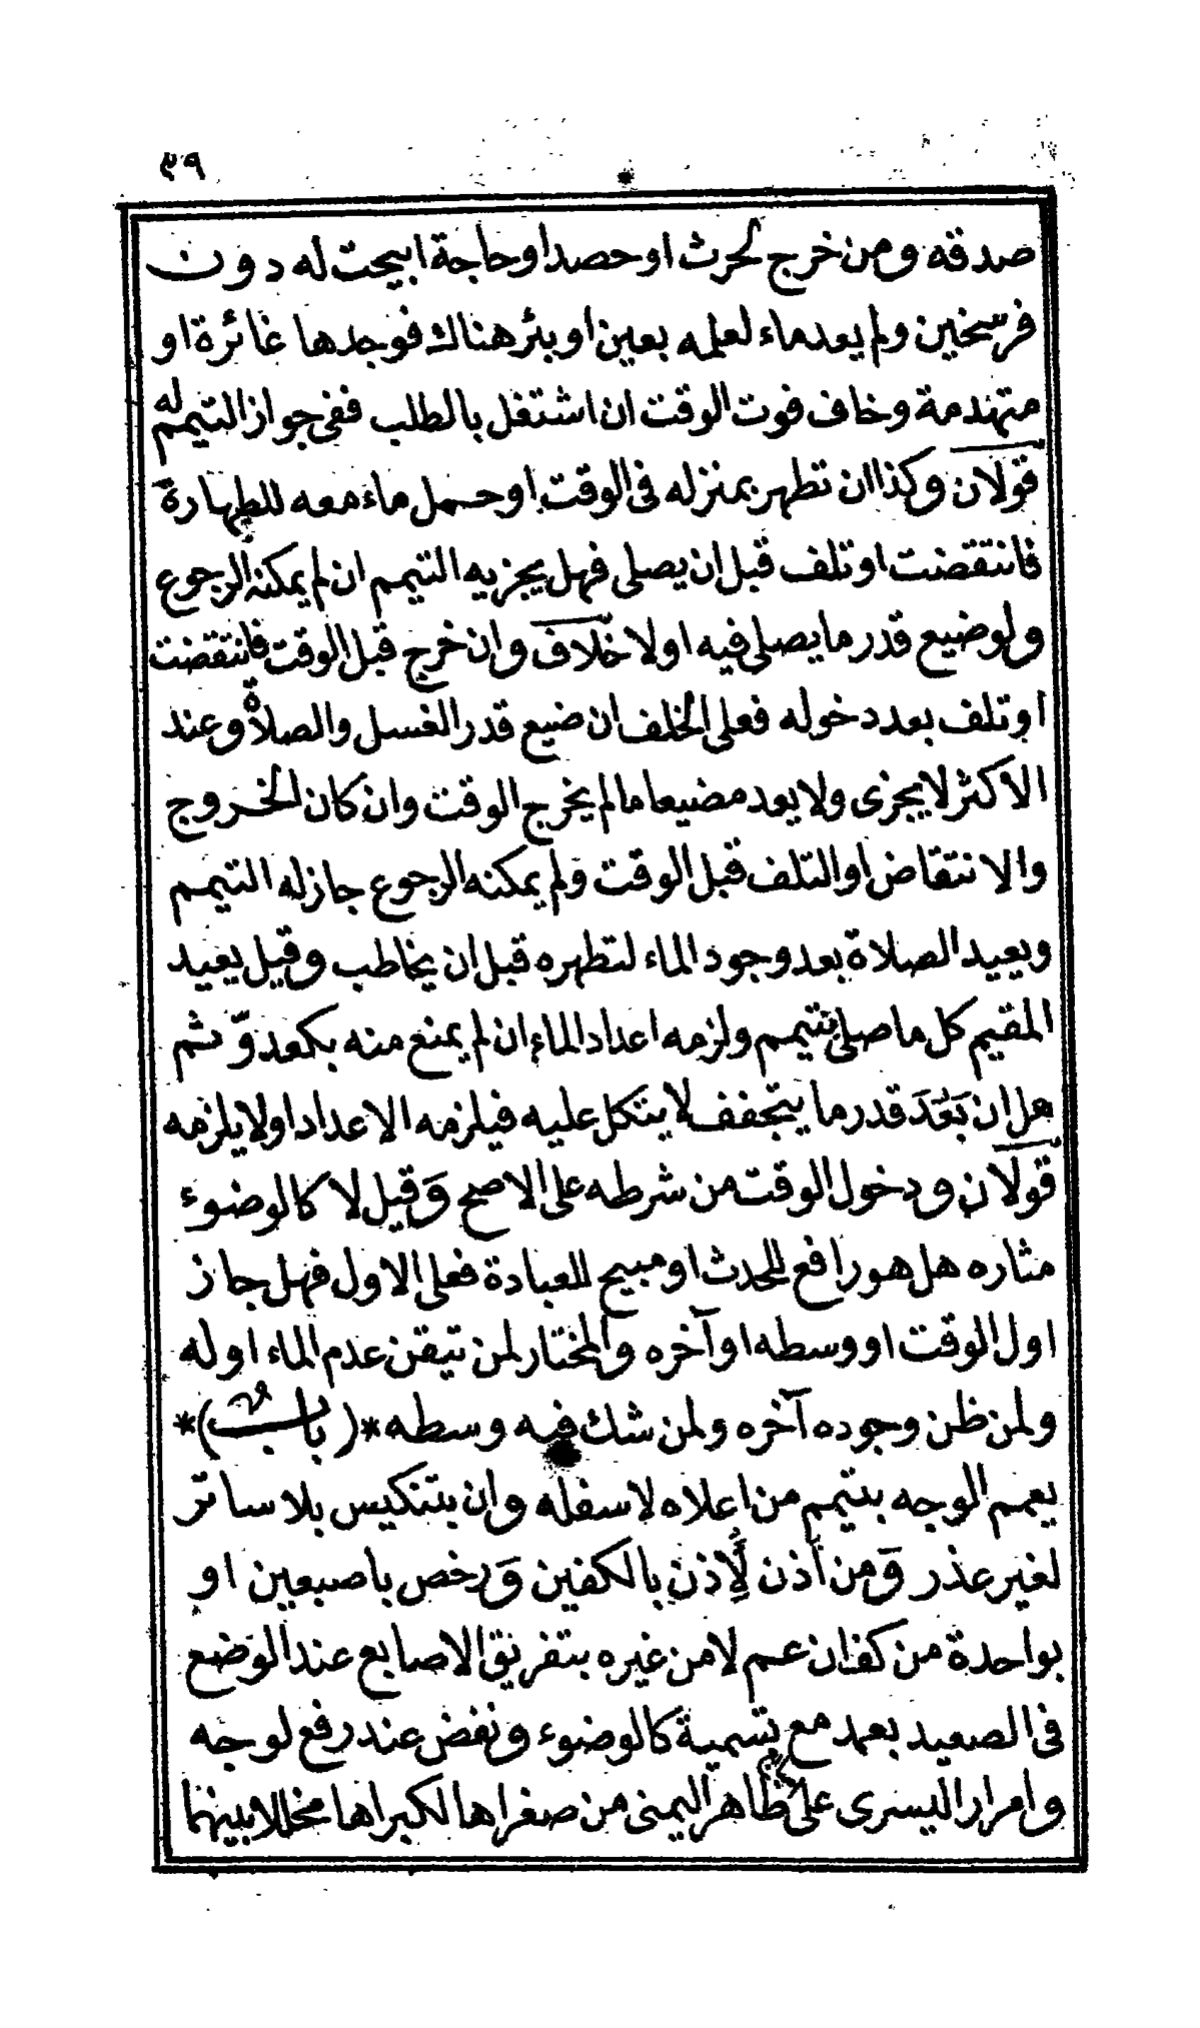 ٤٩
صدقه ومن خرج لحرث او حصد او حاجة ابيحت له دون
فرسخين ولم يعد ماء لعلمه بعين او بئر هناك فوجدها غائرة او
متهدمة وخاف فوت الوقت ان اشتغل بالطلب ففى جواز التيمم له
قولان وكذا ان تطهر بمنزله فى الوقت او حمل ماء معه للطهارة
فانتقضت او تلف قبل ان يصلى فهل يجزيه التيمم ان لم يمكنه الرجوع
ولو ضيع قدر ما يصلى فيه او لا خلاف وان خرج قبل الوقت فانتقضت
او تلف بعد دخوله فعلى الخلف ان ضيع قدر الغسل والصلاة وعند
الاكثر لا يجزى ولا يعد مضيعا ما لم يخرج الوقت وان كان الخروج
والانتقاض او التلف قبل الوقت ولم يمكنه الرجوع جاز له التيمم
ويعيد الصلاة بعد وجود الماء لتطهره قبل ان يخاطب وقيل يعيد
المقيم كل ما صلى بتيمم ولزمه اعداد الماء ان لم يمنع منه بكعدوّ ثم
هل ان بَعُدَ قدر ما يتجفف لا يتكل عليه فيلزمه الاعداد او لا يلزمه
قولان ودخول الوقت من شرطه على الاصح وَقيل لا كالوضوء
مثاره هل هو رافع للحدث او مبيح للعبادة فعلى الاول فهل جاز
اول الوقت او وسطه او آخره والمختار لمن تيقن عدم الماء اوله
ولمن ظن وجوده آخره ولمن شك فيه وسطه *(باب)*
يعمم الوجه بتيمم من اعلاه لاسفله وان بتنكيس بلا ساتر
لغير عذر وَمن أذن لِأذن بالكفين وَرخص باصبعين او
بواحدة من كف ان عم لا من غيره بتفريق الاصابع عند الوضع
فى الصعيد بعمد مع تسمية كالوضوء ونفض عند رفع لوجه
وامرار اليسرى على ظاهر اليمنى من صغراها لكبراها مخللا بينهما